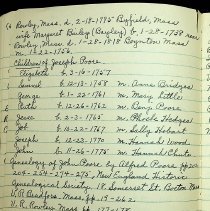 Rowley, Mass. d. 2-18-1795 Byfield, Mass
wife Margaret Bailey (Bayley) b. 1-28-1729 near
Rowley, Mass. d. 1-28-1818 Boynton Mass
m.
Children of Joseph Poore.
Elizabeth b. 3-16-1757
Samuel b. 12-13-1758 m. Anna Bridges
George b. 11-22-1761 m. Mary Little
Ruth b. 12-26-1762 m. Benj Poore
Jesse b. 2-3-1765 m. Phebe Hedges
Job b. 10-22-1767 m. Sally Hobart
Joseph b. 12-23-1770 m. Hannah Wood
John b. 11-26-1775 m. Hannah Chute
Genealogy of John Poore by Alfred Poore pp 25
204-254-274-275, New England Historic
Genealogical Society. 18 Somerset St, Boston Mass
V.R. Bradford, Mass. pp. 117-262.
V.R. Rowley Mass. pp. 177-178